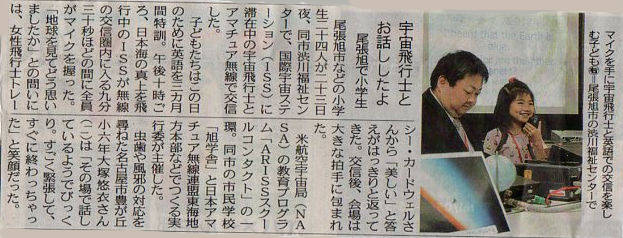 マイクを手に宇宙飛行士と英語での交信を楽し
む子ども㊨=尾張旭市の渋川福祉センターで
宇宙飛行士と
お話ししたよ
尾張旭で小学生
尾張旭市などの小学
生三十四人が二十三日
夜、同市渋川福祉セン
ターで、国際宇宙ステ
ーション(ISS)に
滞在中の宇宙飛行士と
アマチュア無線で交信
した。
子どもたちはこの日
のために英語を三カ月
間特訓。午後十時ご
ろ、日本海の真上を飛
行中のISSが無線
の交信圏内に入る九分
三十秒ほどの間に全員
がマイクを握った。
「地球を見てどう思い
ましたか」との問いに
は、女性飛行士トレー
シー・カードウェルさ
んから「美しい」と答
えがはっきりと返って
きた。交信後、会場は
大きな拍手に包まれ
た。
米航空宇宙局(NA
SA)の教育プログラ
ム「ARISSスクー
ルコンタクト」の一
環。同市の市民学校
「旭学舎」と日本アマ
チュア無線連盟東海地
方本部などでつくる実
行委が主催した。
虫歯や風邪の対応を
尋ねた名古屋市豊が丘
小六年大塚悠衣さん
(一二)は「その場で話し
ているようでびっく
り。すごく緊張して、
すぐに終わっちゃっ
た」と笑顔だった。
heard that the Earth is